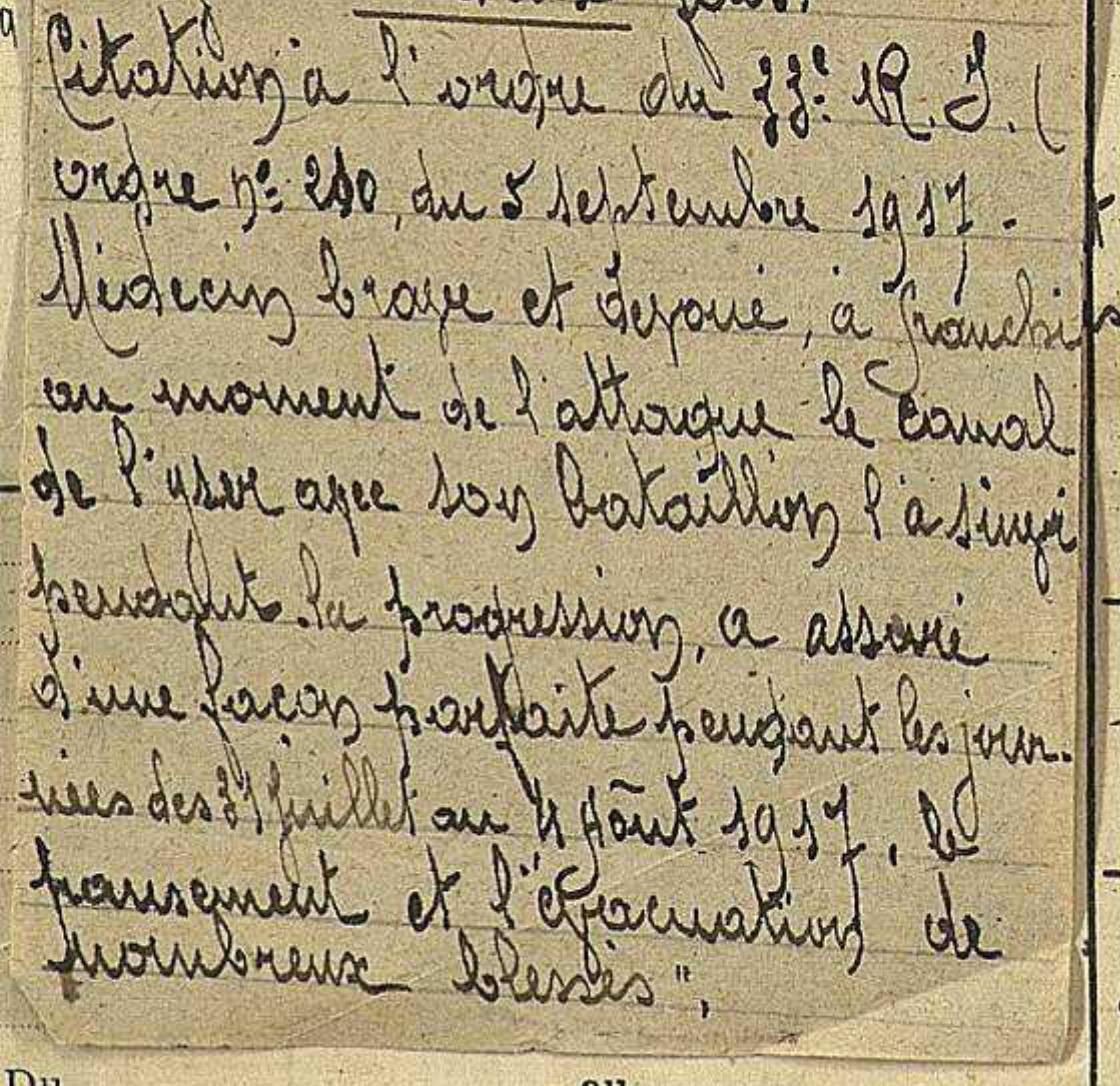 Citation à l'ordre du 33e R.I. (
ordre no 240, du 5 septembre 1917.
Médecin brave et dévoué, a franchi
au moment de l'attaque le canal
de l'yser avec son bataillon l'a suivi
pendant la progression, a assuré
d'une façon parfaite pendant les jour-
nées des 31 juillet au 4 Août 1917, le
pansement et l'évacuation de
nombreux blessés",
Du au